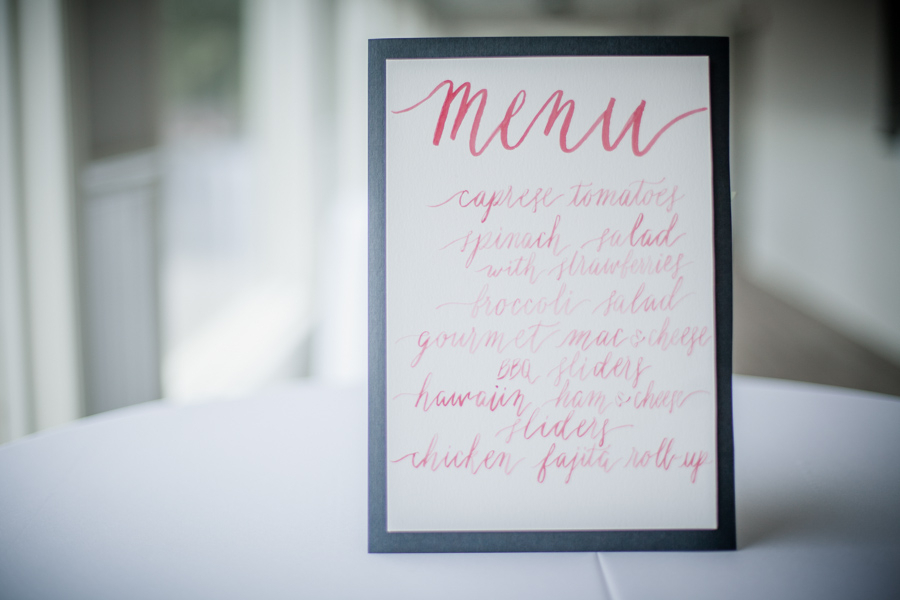 menu
caprese tomatoes
spinach salad
with strawberries
broccoli salad
gourmet mac & cheese
BBQ sliders
hawaiin ham & cheese
sliders
chicken fajita roll-up